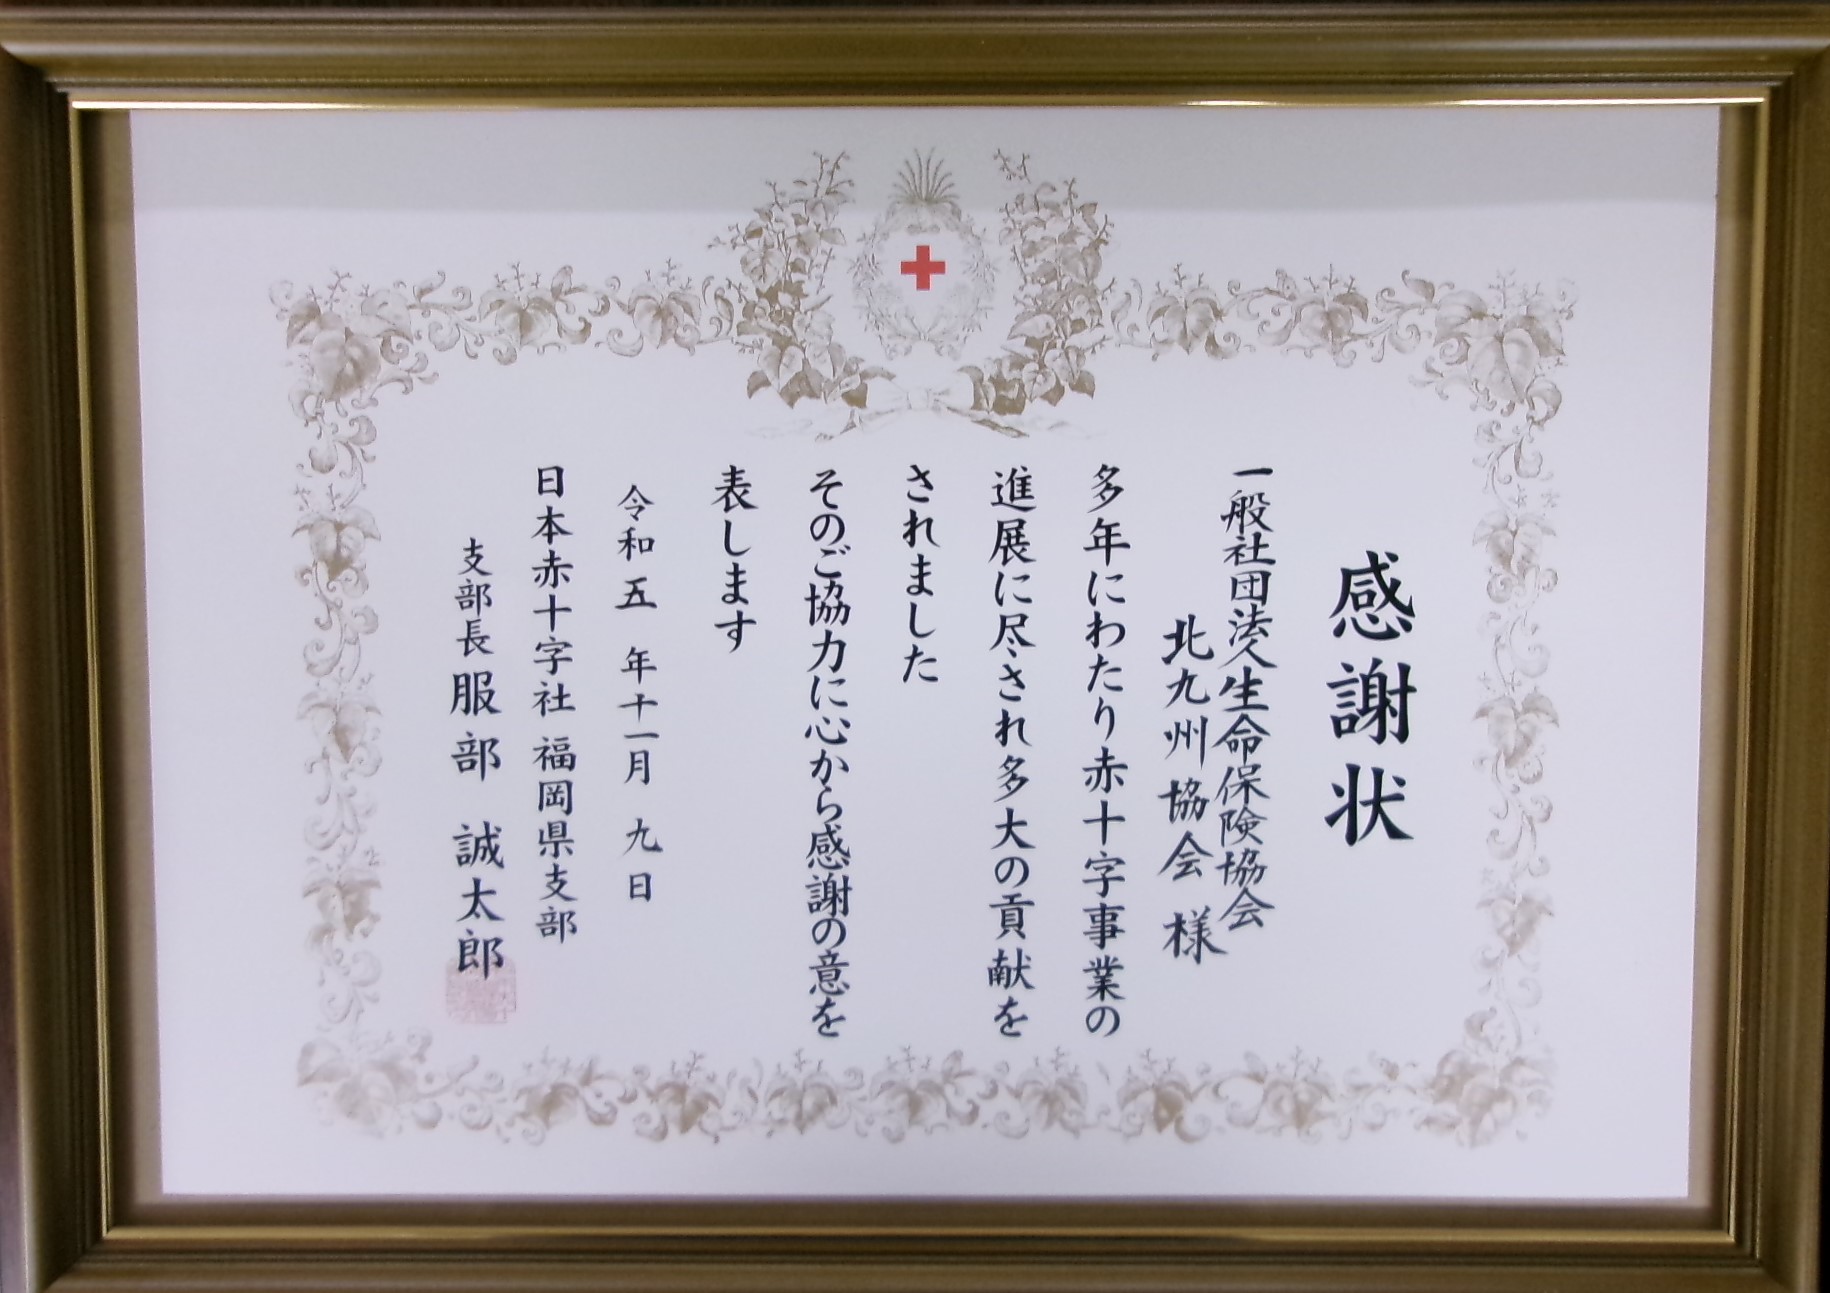 感謝状
一般社団法人生命保険協会
北九州協会 様
多年にわたり赤十字事業の
進展に尽され多大の貢献を
されました
そのご協力に心から感謝の意を
表します
令和五年十一月九日
日本赤十字社 福岡県支部
支部長 服部 誠太郎